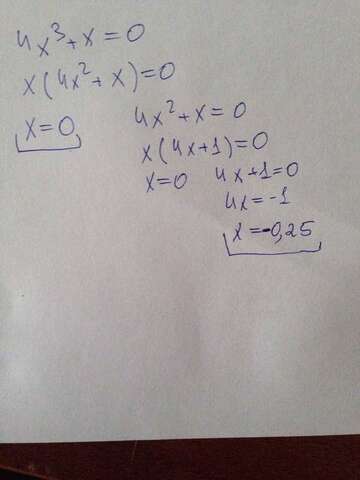 4x³+x=0
x(4x²+x)=0
x=0
4x²+x=0
x(4x+1)=0
x=0 4x+1=0
4x=-1
x=-0,25